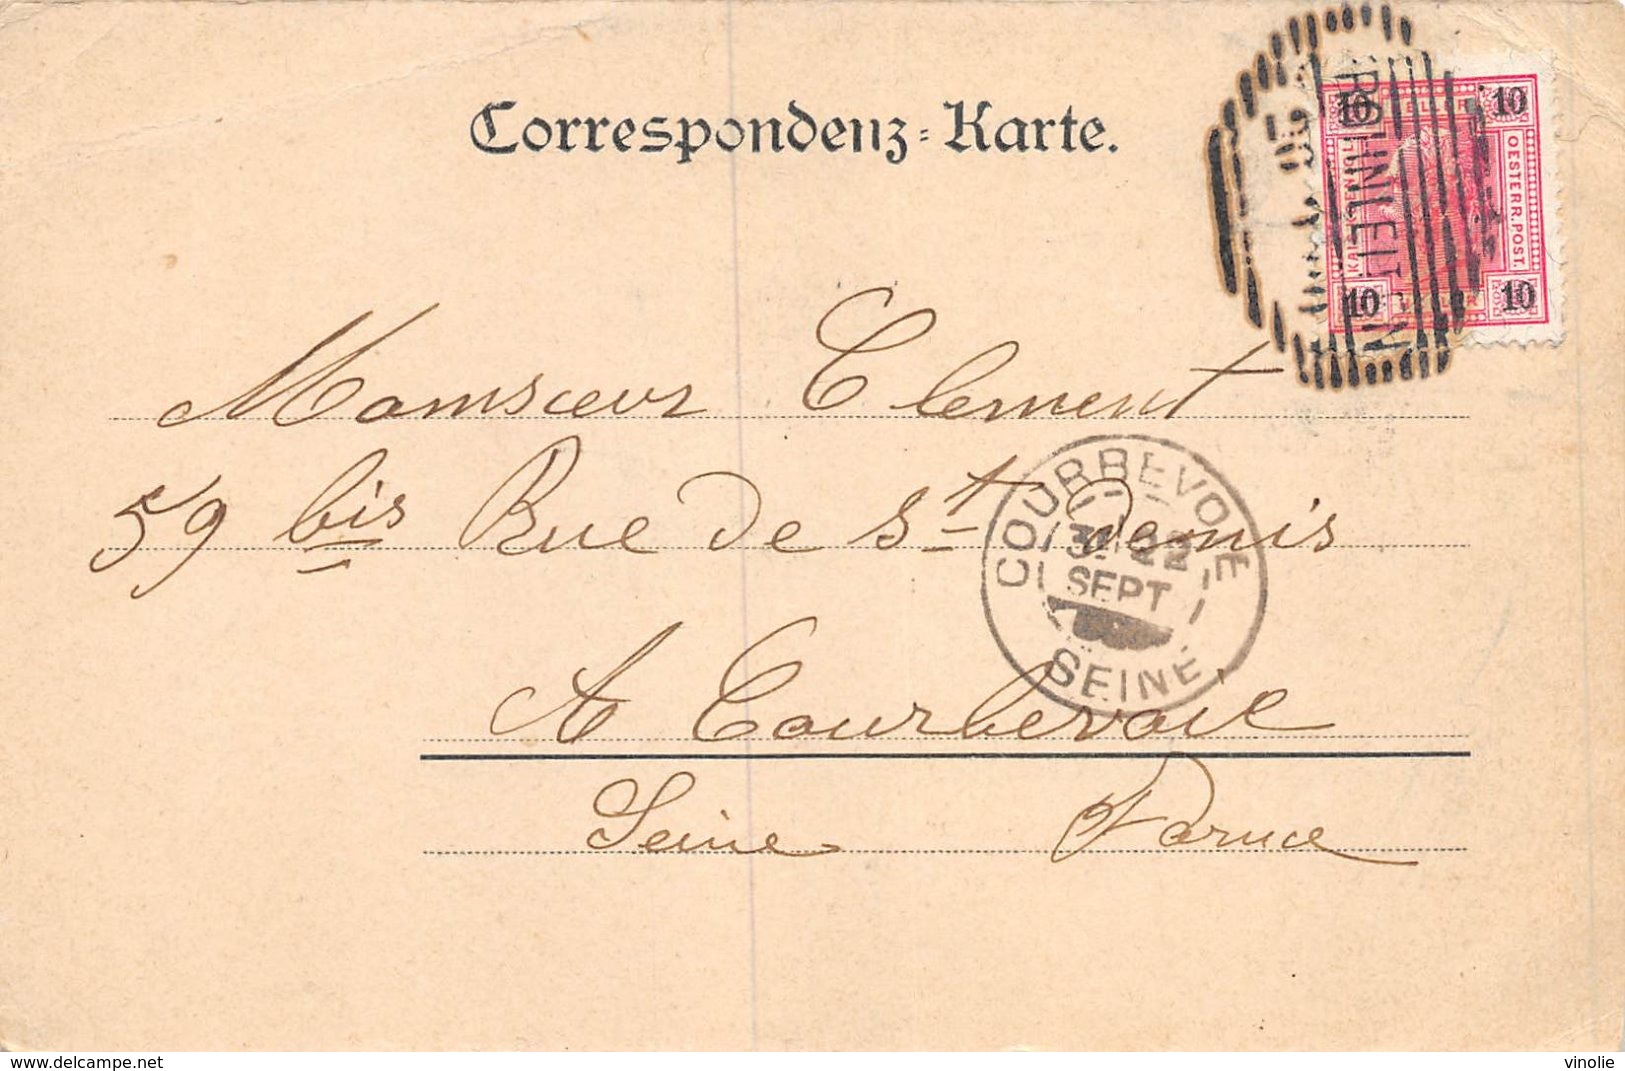 Correspondenz-Karte.
10 10
OESTERR. POST.
10 10
Monsieur Clement
59 bis Rue de St Denis
COURBEVOIE
22
SEPT
SEINE
A Courbevoie
Seine France
delcampe.net
vinolie